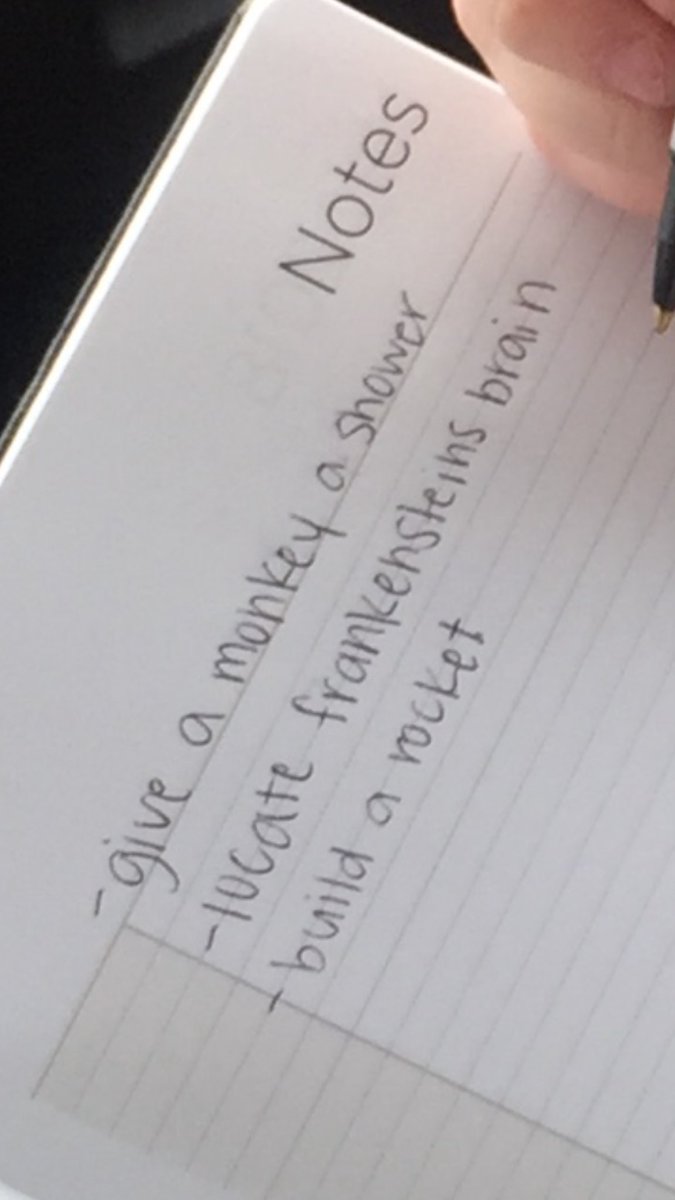 Notes
-give a monkey a shower
-locate frankensteins brain
-build a rocket